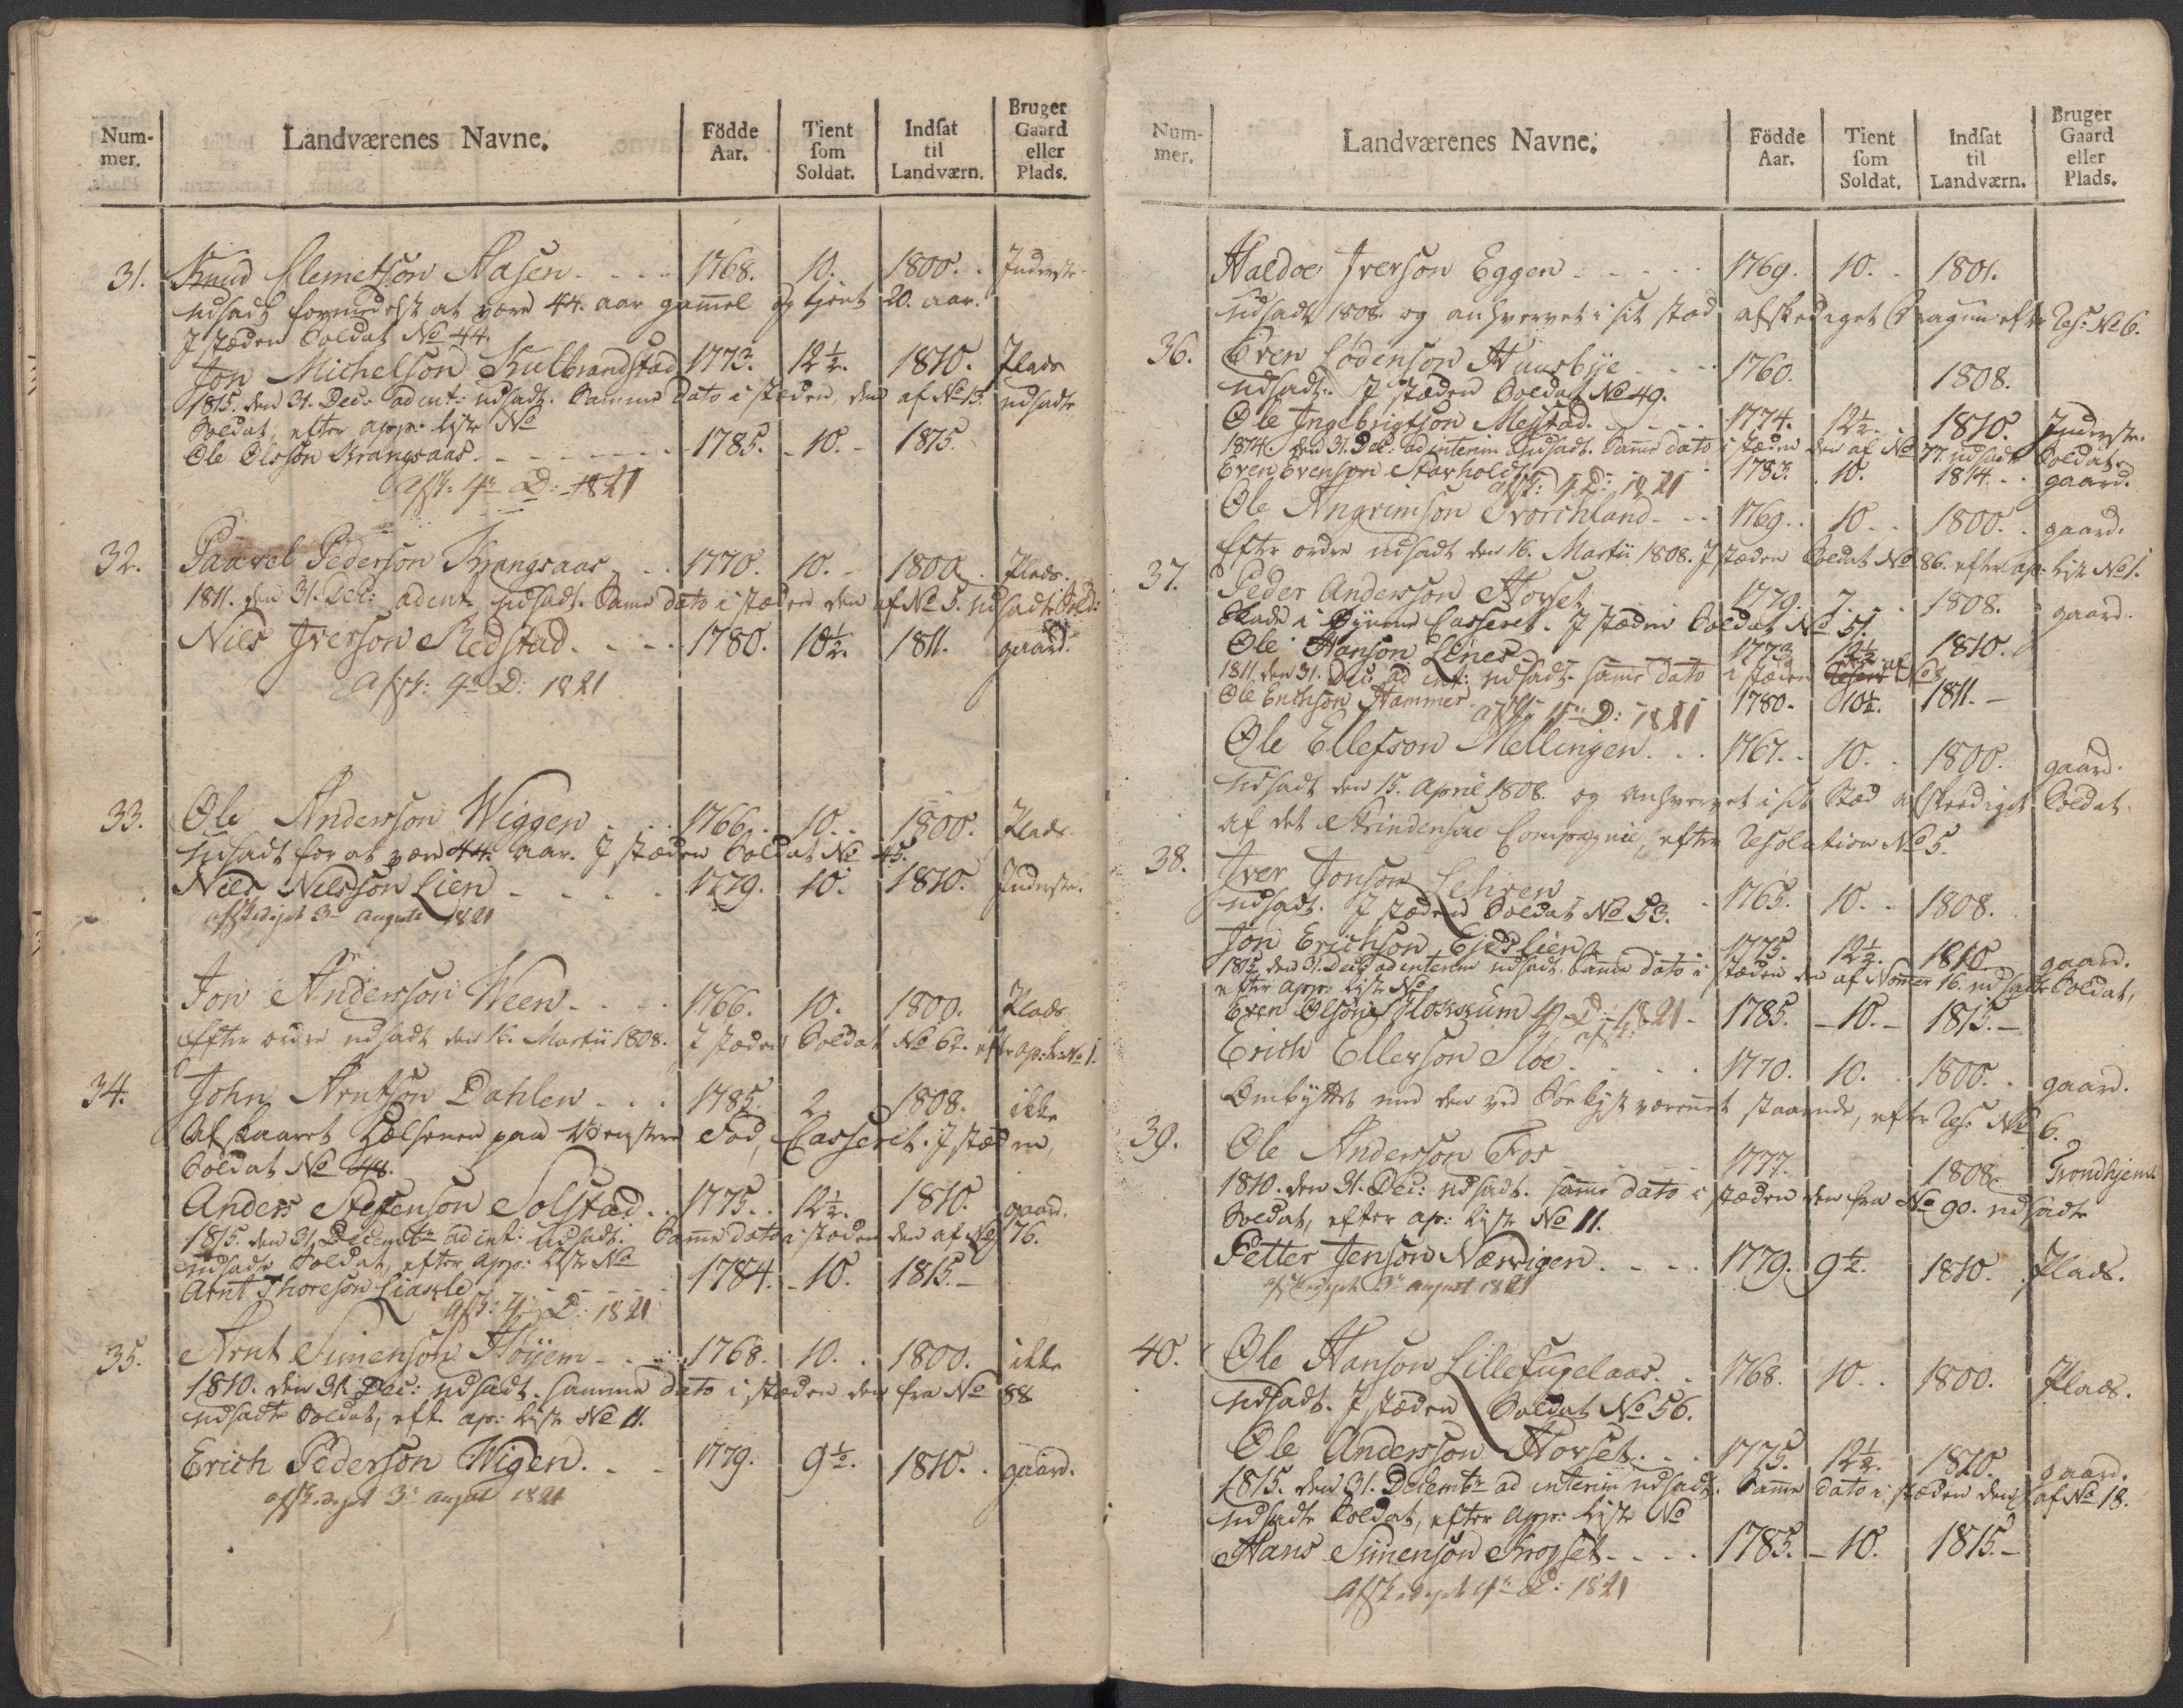 Num-
mer.
Landværenes Navne.
Födde
Aar.
Tient
som
Soldat.
Indsat
til
Landværn.
Bruger
Gaard
eller
Plads.
31. Knud Clemetson Aasen 1768. 10. 1800. Inderste
udsadt formedelst at være 44. aar gammel og tjent 20. aar.
I stæden Soldat No 44.
Jon Michelson Kulbrandstad 1773. 12½. 1810. Plads
1815. den 31. Dec: ad int: udsadt. Samme dato i stæden den af No 13. udsadte
Soldat, efter app: liste No
Ole Olsson Krangsaas 1785. 10. 1815.
Afsk: 4n D: 1821
32. Paavel Pederson Krangsaas 1770. 10. 1800. Plads.
1811. den 31. Dec: ad int. udsadt. Samme dato i stæden den af No 5. udsadte Sold:
Nils Iverson Redstad 1780. 10½. 1811. gaard.
Afsk: 4n D: 1821
33. Ole Anderson Wiggen 1766. 10. 1800. Plads
udsadt for at være 44. aar. I stæden Soldat No 45.
Niels Nilsson Lien 1779. 10. 1810. Inderste.
afskediget 3n august 1821
Jon Anderson Ween 1766. 10. 1800. Plads
Efter ordre udsadt den 16. Martii 1808. I stæden Soldat No 62. efter ap: l: No 1.
34. John Arntson Dahlen 1785. 2. 1808. ikke
Afskaaret Hælsenen paa Venstre Fod, Casseret. I stæden,
Soldat No 48.
Anders Steffenson Solstad 1775. 12½. 1810. gaard.
1815. den 31. Decembr ad int: udsadt. Samme dato i stæden den af No 176.
udsadte Soldat, efter app: liste No
Arnt Thoreson Liaskle 1784. 10. 1815.
Afsk: 4n D: 1821
35. Arnt Simenson Höyem 1768. 10. 1800. ikke
1810. den 31. Dec: udsadt. samme dato i stæden den fra No 88
udsadte Soldat, eft. ap: liste No 11.
Erich Pederson Wigen 1779. 9½. 1810. gaard.
afskediget 3n august 1821
Num-
mer.
Landværenes Navne.
Födde
Aar.
Tient
som
Soldat.
Indsat
til
Landværn.
Bruger
Gaard
eller
Plads.
Haldoe Iverson Eggen 1769. 10. 1801.
udsadt 1808. og anhvervet i sit stæd afskediget Dragun efter Res: No 6.
36. Even Lodenson Huusbye 1760. 1808.
udsadt. I stæden Soldat No 49.
Ole Ingebrigtson Mejstad 1774. 12½. 1810. Inderste.
1814. den 31. Dec: ad interim udsadt. Samme dato i stæden den af No 77. udsadte Soldat.
Even Evenson Storholdt 1783. 10. 1814. gaard.
afsk: 4 D: 1821
Ole Angrimson Tvorchland 1769. 10. 1800. gaard.
Efter ordre udsadt den 16. Martii 1808. I stæden Soldat No 86. efter ap: liste No 1.
37. Peder Anderson Horset 1779. 7. 1808. gaard.
Skade i Øynene Casseret. I stæden Soldat No 51.
Ole Hanson Lines 1773. 12½ 1810.
1811. den 31. Dec: ad int: udsadt. samme dato i stæden af No 8
Ole Erichson Hammer 1780. 10½. 1811.
Afsk: 4n D: 1821
Ole Ellefson Mellingen 1767. 10. 1800. gaard.
udsadt den 15. April 1808. og anhvervet i sit Stæd afskediget Soldat
af det Strindenske Compagnie, efter Resolution No 5.
38. Iver Jonson Lehren 1765. 10. 1808.
udsadt. I stæden Soldat No 53.
Jon Erichson Eidslien 1775. 12½. 1810 gaard.
1815. den 31. Dec: ad interim udsadt. Samme dato i stæden den af Nomer 16. udsadte Soldat,
efter app: liste No
Even Olson Floksum 1785. 10. 1815.
afsk: 4 D: 1821
Erich Ellerson Moe 1770. 10. 1800. gaard.
Ombyttet med den ved Søe Kyst værnet staaende, efter Res: No 6.
39. Ole Anderson Fos 1777. 1808. Trondhjem
1810. den 31. Dec: udsadt. samme dato i stæden den fra No 90. udsadte
Soldat, efter ap: liste No 11.
Petter Jenson Nærvigen 1779. 9½. 1810. Plads.
afskediget 3n august 1821
40. Ole Hanson Lillefuglaas 1768. 10. 1800. Plads.
udsadt. I stæden Soldat No 56.
Ole Andersson Horset 1775. 12½. 1810. gaard.
1815. den 31. Decembr ad interim udsadt. Samme dato i stæden den af No 18.
udsadte Soldat, efter App: liste No
Hans Simenson Krogset 1785. 10. 1815.
Afskediget 4n D: 1821